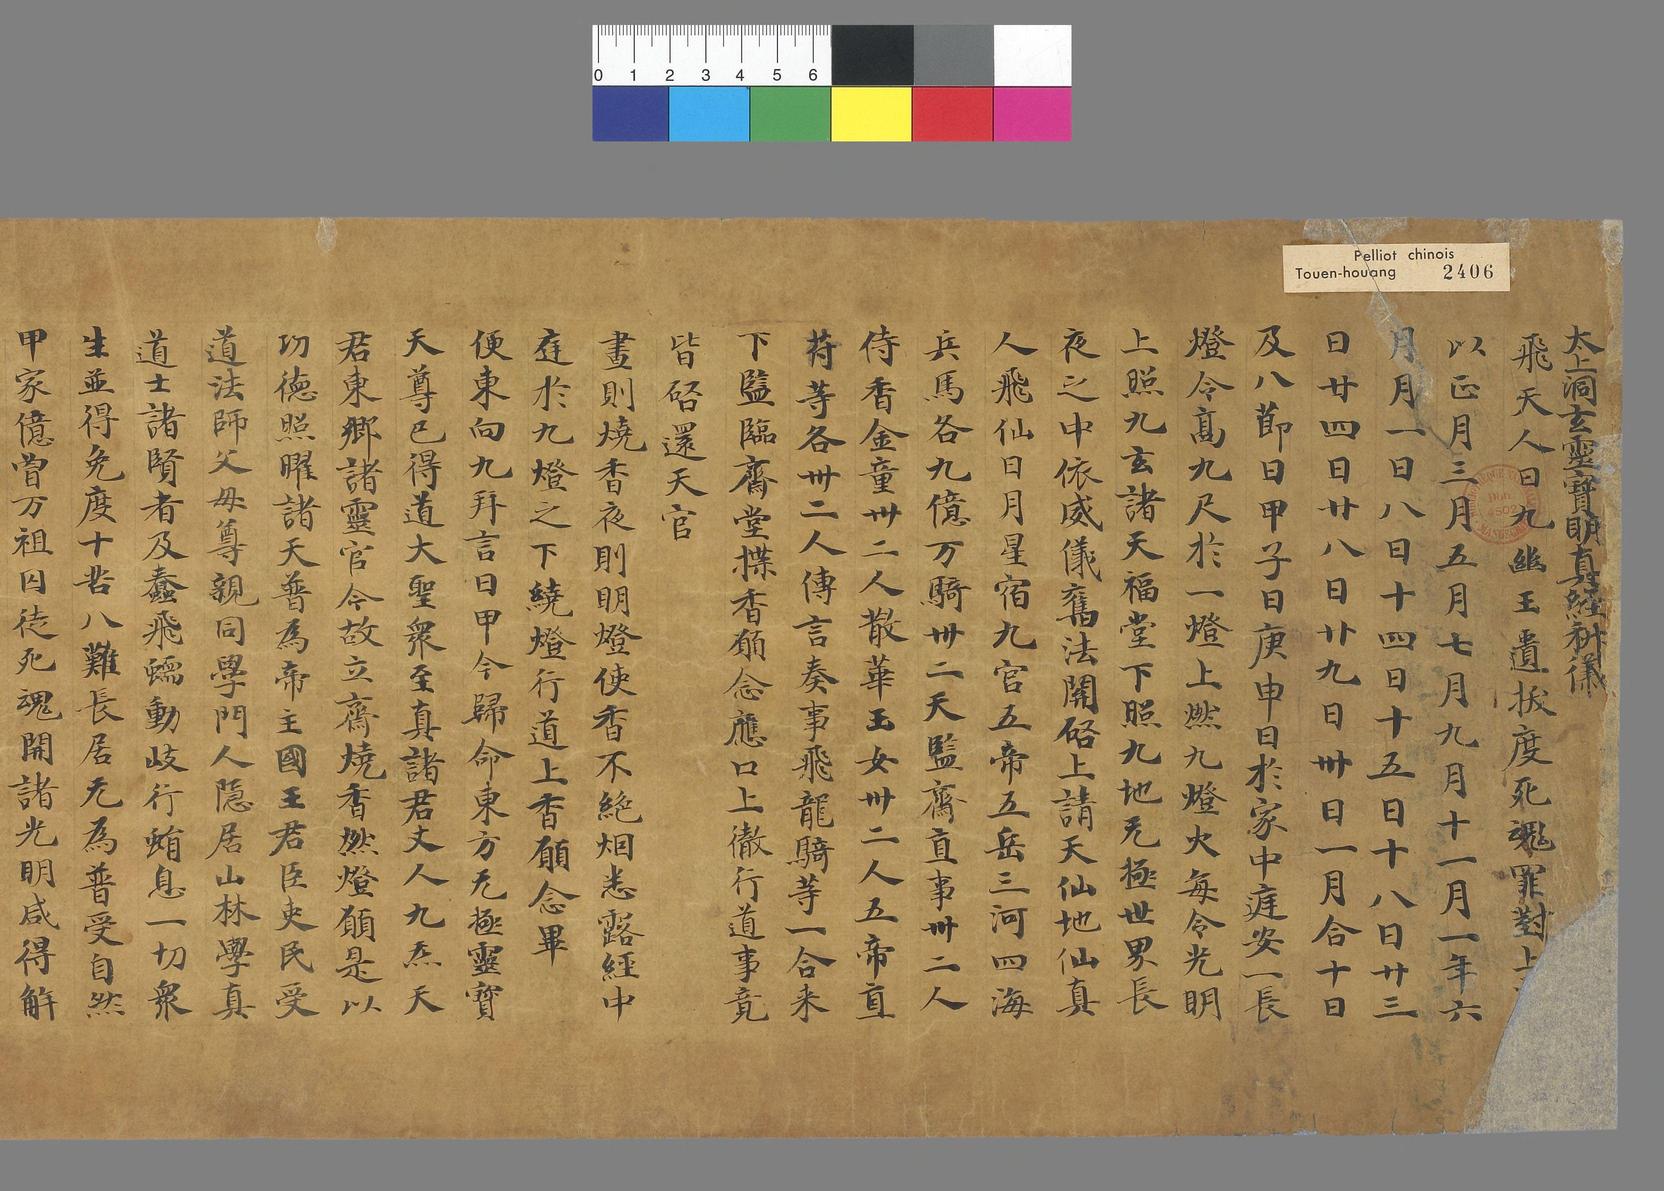 0 1 2 3 4 5 6
Pelliot chinois
Touen-houang 2406
太上洞玄靈寶明真經科儀
飛天人曰九幽玉遺拔度死魂罪對上
以正月三月五月七月九月十一月一年六
月月一日八日十四日十五日十八日廿三
日廿四日廿八日廿九日卅日一月合十日
及八節日甲子日庚申日於家中庭安一長
燈令高九尺於一燈上燃九燈火每令光明
上照九玄諸天福堂下照九地无極世界長
夜之中依威儀舊法開啓上請天仙地仙真
人飛仙日月星宿九宫五帝五岳三河四海
兵馬各九億万騎卅二天監齋直事卅二人
侍香金童卅二人散華玉女卅二人五帝直
苻等各卅二人傳言奏事飛龍騎等一合来
下監臨齋堂㩸香願念應口上徹行道事竟
皆啓還天官
晝則燒香夜則明燈使香不絶烟悉露經中
庭於九燈之下繞燈行道上香願念畢
便東向九拜言曰甲今歸命東方无極靈寳
天尊已得道大聖衆至真諸君丈人九炁天
君東鄉諸靈官今故立齋燒香燃燈願是以
功德照曜諸天普為帝主國王君臣吏民受
道法師父母尊親同學門人隐居山林學真
道士諸賢者及蠢飛蠕動岐行蜎息一切衆
生並得免度十苦八難長居无為普受自然
甲家億曾万祖囚徒死魂開諸光明咸得解